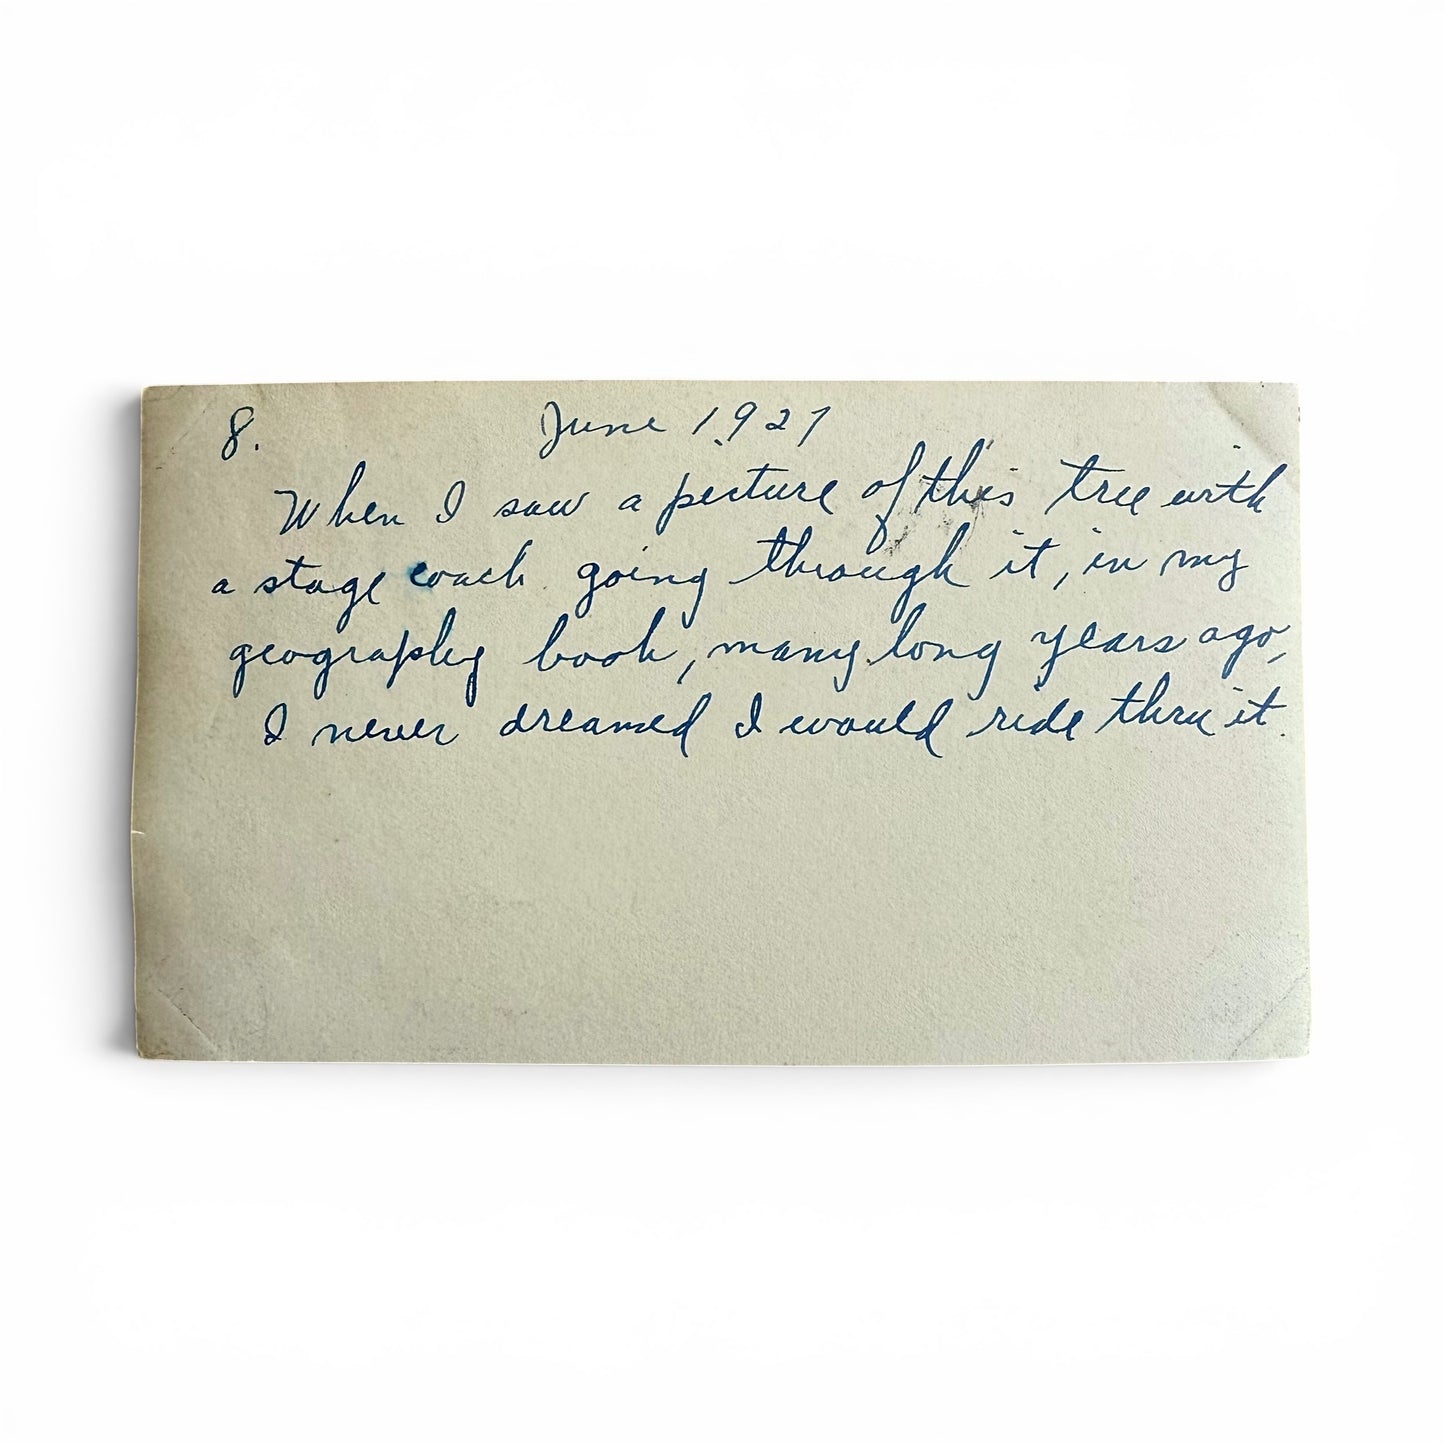 8. June 1927
When I saw a picture of this tree with
a stage coach going through it, in my
geography book, many long years ago,
I never dreamed I would ride thru it.